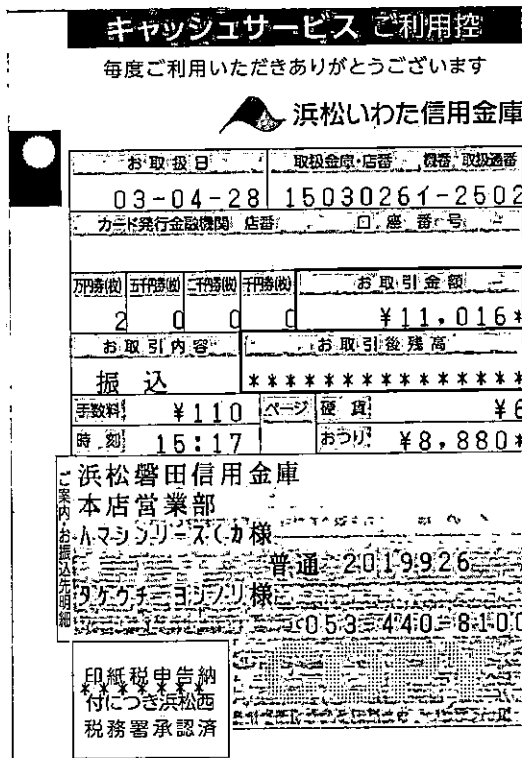 キャッシュサービス ご利用控
毎度ご利用いただきありがとうございます
浜松いわた信用金庫
お取扱日 取扱金庫・店番 機番 取扱通番
03-04-28 15030261-2502
カード発行金融機関 店番 口座番号
万円券(枚) 五千円券(枚) 二千円券(枚) 千円券(枚) お取引金額
2 0 0 0 ¥11,016*
お取引内容 お取引後残高
振込 **************
手数料 ¥110 ページ 硬貨 ¥6
時刻 15:17 おつり ¥8,880*
ご案内・お振込先明細
浜松磐田信用金庫
本店営業部
ハマシンリース(カ様
普通 2019926
タケウチ ヨシノリ様
053-440-8100
印紙税申告納
*******
付につき浜松西
税務署承認済